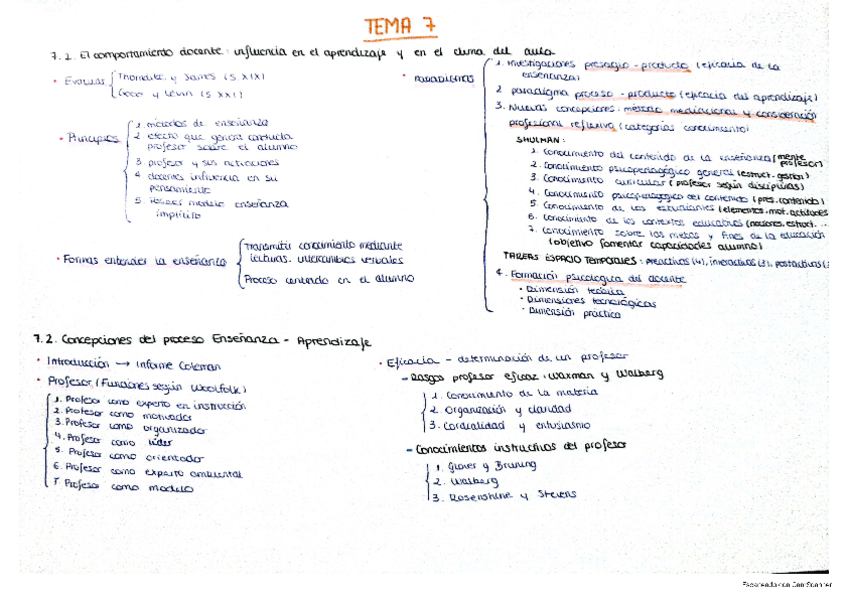 TEMA 7
7.1. El comportamiento docente: influencia en el aprendizaje y en el clima del aula.
· Evaluas
Thorndike y James (S XIX)
Good y Levin (S XXI)
· Principios
1. métodos de enseñanza
2. efecto que genera conducta
profesor sobre el alumno
3. profesor y sus actuaciones
4. docentes influencia en su
pensamiento
5. modelo enseñanza
implícito
· Formas entender la enseñanza
Transmitir conocimiento mediante
lecturas, intercambios verbales
Proceso centrado en el alumno
· Paradigmas
1. Investigaciones presagio - producto (eficacia de la
enseñanza)
2. paradigma proceso - producto (eficacia del aprendizaje)
3. Nuevas concepciones: método mediacional y consideración
profesional reflexivo (categorías conocimiento)
SHULMAN:
1. Conocimiento del contenido de la enseñanza (mente
profesor)
2. Conocimiento psicopedagógico general (estruct. gestión)
3. Conocimiento curricular (profesor según disciplinas)
4. Conocimiento psicopedagógico del contenido (pres. contenido)
5. Conocimiento de los estudiantes (elementos. mot. actitudes
6. Conocimiento de los contextos educativos (naciones, estruct. ...
7. Conocimiento sobre las metas y fines de la educación
(objetivo fomentar capacidades alumno)
TAREAS ESPACIO TEMPORALES: preactivas (4), interactivas (3), postactivas (
4. Formación psicológica del docente
· Dimensión teórica
· Dimensiones tecnológicas
· Dimensión práctica
7.2. Concepciones del proceso Enseñanza - Aprendizaje
· Introducción → Informe Coleman
· Profesor (Funciones según Woolfolk)
1. Profesor como experto en instrucción
2. Profesor como motivador
3. Profesor como organizador
4. Profesor como líder
5. Profesor como orientador
6. Profesor como experto ambiental
7. Profesor como modelo
· Eficacia - determinación de un profesor
- Rasgos profesor eficaz: Waxman y Walberg
1. Conocimiento de la materia
2. Organización y claridad
3. Cordialidad y entusiasmo
- Conocimientos instructivos del profesor
1. Glover y Bruning
2. Walberg
3. Rosenshine y Stevens
Escaneado con CamScanner